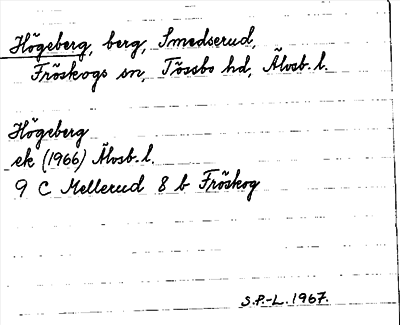 Högeberg, berg, Smedserud,
Fröskogs sn, Tössbo hd, Älvsb. l.
Högeberg
ek (1966) Älvsb. l.
9 C Mellerud 8 b Fröskog
S.P.-L. 1967.